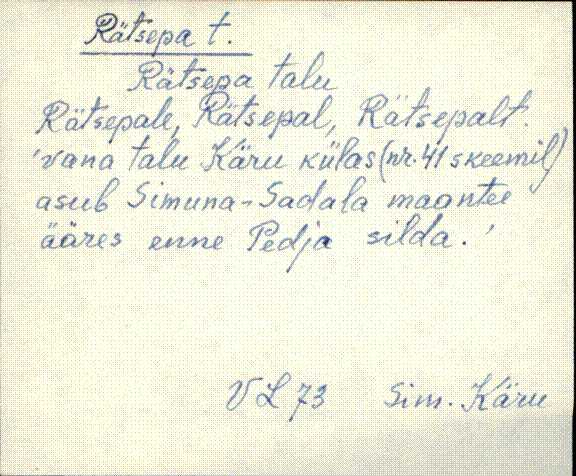 Rätsepa t.
Rätsepa talu
Rätsepale, Rätsepal, Rätsepalt.
'vana talu Käru külas (nr. 41 skeemil)
asub Simuna-Sadala maantee
ääres enne Pedja silda.'
VL 73 Sim. Käru